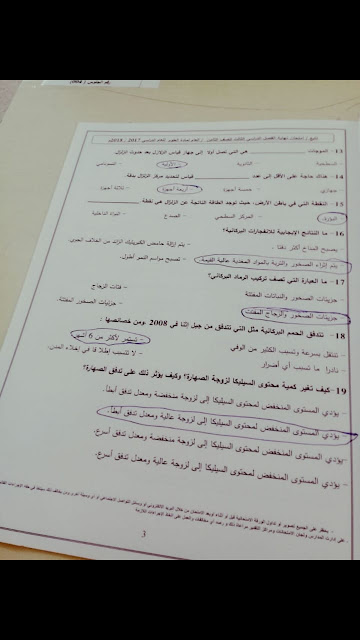 13- الموجات ________ هي التي تصل أولا إلى جهاز قياس الزلازل بعد حدوث الزلزال.
- السطحية. - الثانوية - الأولية -
14- هناك حاجة على الأقل إلى عدد ________ قياس لتحديد مركز الزلزال بدقة.
- جهازي. - خمسة أجهزة - أربعة أجهزة - ثلاثة أجهزة
15- النقطة التي في باطن الأرض، حيث توجد الطاقة الناتجة عن الزلزال هي نقطة ________
- البؤرة. - المركز السطحي - الصدع -
16- ما النتائج الإيجابية للانفجارات البركانية؟
- يصبح المناخ أكثر دفئا. - يتم إزالة حامض الكبريتيك الزائد من الغلاف الجوي.
- يتم إثراء الصخور والتربة بالمواد المغذية عالية القيمة. - تصبح مواسم النمو أطول.
17- ما العبارة التي تصف تركيب الرماد البركاني؟
- جزيئات الصخور والنباتات المفتتة - فتات الزجاج
- جزيئات الصخور والزجاج المفتت - جزئيات الصخور المفتتة.
18- تتدفق الحمم البركانية مثل التي تتدفق من جبل إتنا في 2008 ومن خصائصها :
- تنتقل بسرعة وتسبب الكثير من - تستمر لأكثر من 6 أشهر
- نادرا ما تسبب أي أضرار - لا تتسبب إطلاقا في إخلاء المدن.
19- كيف تغير كمية محتوى السيليكا لزوجة الصهارة؟ وكيف يؤثر ذلك على تدفق الصهارة؟
- يؤدي المستوى المنخفض لمحتوى السيليكا إلى لزوجة منخفضة ومعدل تدفق أبطأ.
- يؤدي المستوى المنخفض لمحتوى السيليكا إلى لزوجة عالية ومعدل تدفق أبطأ.
- يؤدي المستوى المنخفض لمحتوى السيليكا إلى لزوجة منخفضة ومعدل تدفق أسرع.
- يؤدي المستوى المنخفض لمحتوى السيليكا إلى لزوجة عالية ومعدل تدفق أسرع.
3